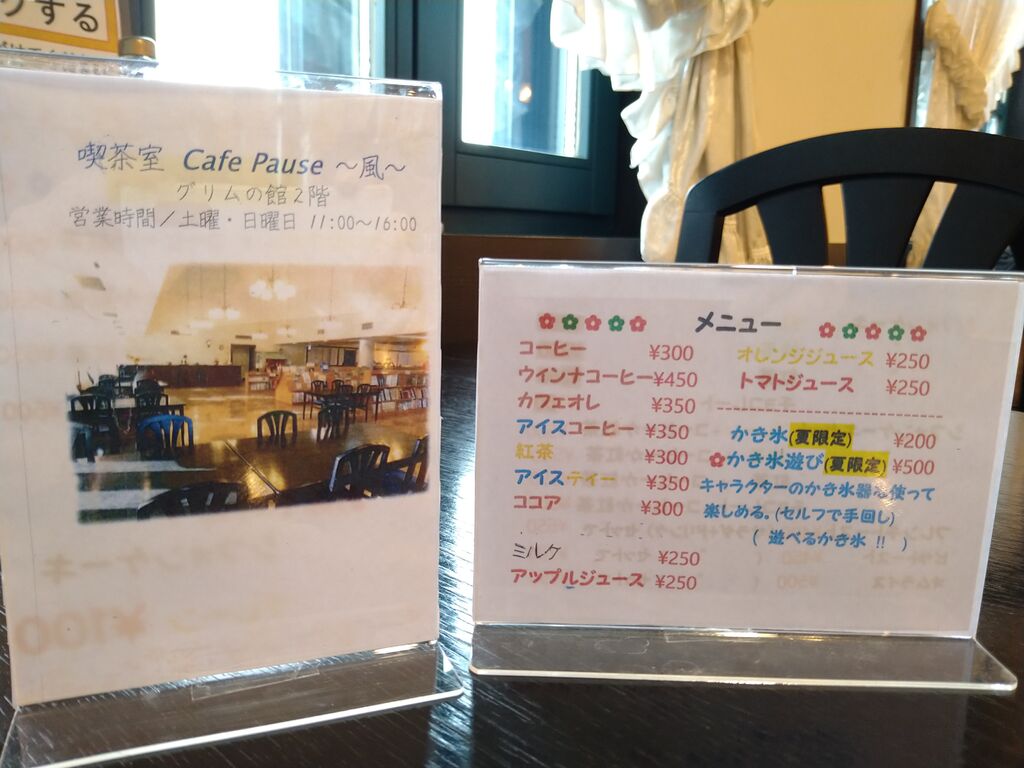 する
喫茶室 Cafe Pause ～風～
グリムの館2階
営業時間／土曜・日曜日 11:00～16:00
メニュー
コーヒー ¥300
ウインナコーヒー ¥450
カフェオレ ¥350
アイスコーヒー ¥350
紅茶 ¥300
アイスティー ¥350
ココア ¥300
ミルク ¥250
アップルジュース ¥250
オレンジジュース ¥250
トマトジュース ¥250
かき氷(夏限定) ¥200
かき氷遊び(夏限定) ¥500
キャラクターのかき氷器を使って
楽しめる。(セルフで手回し)
( 遊べるかき氷 !! )